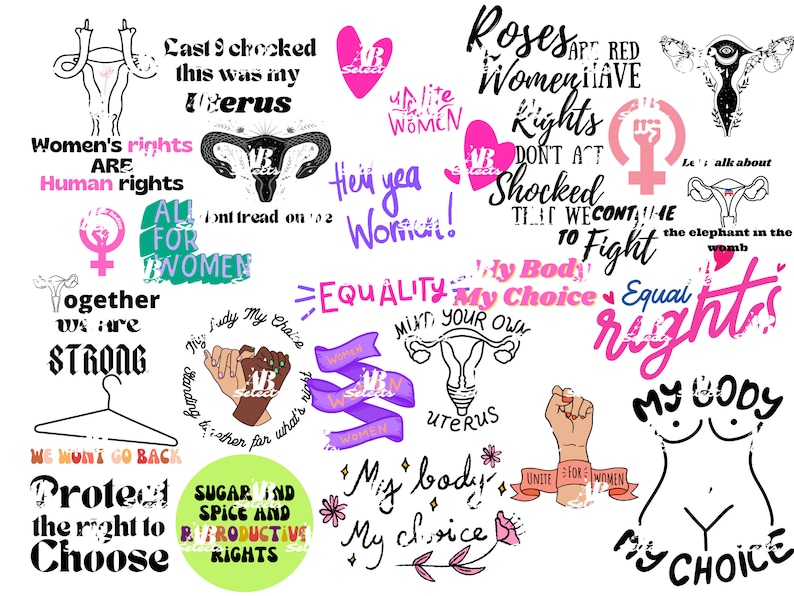 Last I checked
this was my
Uterus
Women's rights
ARE
Human rights
Dont tread on me
ALL
FOR
WOMEN
Hell yea
Women!
unite
WOMEN
Roses ARE RED
Women HAVE
Rights
DON'T ACT
Shocked
THAT WE CONTINUE
TO Fight
Let's talk about
the elephant in the
womb
Together
we are
STRONG
EQUALITY
My Body
My Choice
Equal
rights
My Body My Choice
Standing together for what's right
WOMEN
WOMEN
WOMEN
MIND YOUR OWN
UTERUS
WE WON'T GO BACK
UNITE FOR WOMEN
MY BODY
MY CHOICE
Protect
the right to
Choose
SUGAR AND
SPICE AND
REPRODUCTIVE
RIGHTS
My body
My choice
AB
Selects